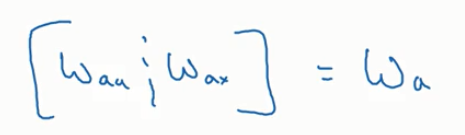 [Waa ¦ Wax] = Wa